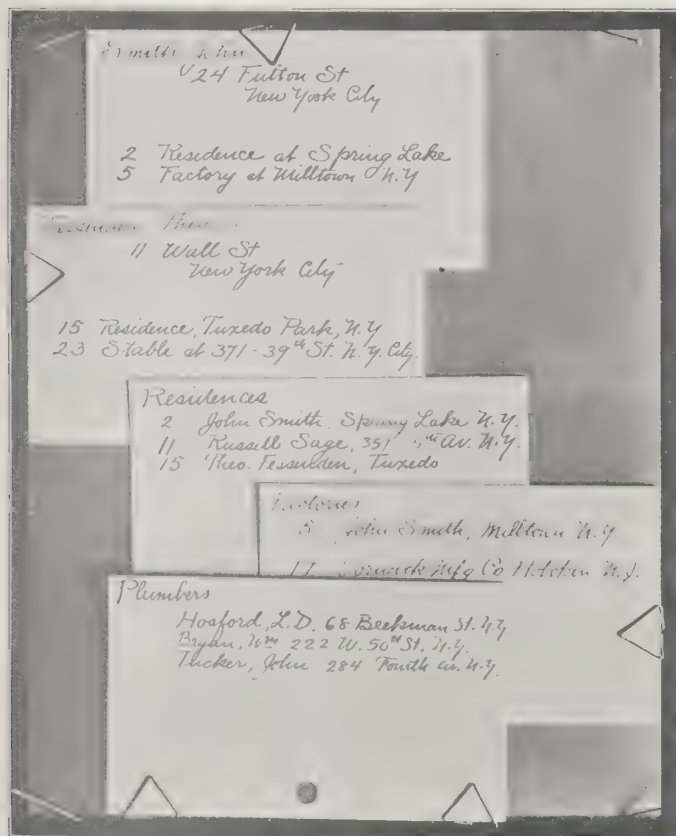 Smith, John
124 Fulton St
New York City
2 Residence at Spring Lake
5 Factory at Milltown N.Y
11 Wall St
New York City
15 Residence, Tuxedo Park, N.Y
23 Stable at 371-39th St. N.Y. City.
Residences
2 John Smith, Spring Lake N.Y.
11 Russell Sage, 351 5th Av. N.Y.
15 Theo. Fessenden, Tuxedo
Factories
5 John Smith, Milltown N.Y
17 Mfg Co N.J.
Plumbers
Hosford, L.D. 68 Beekman St. N.Y
Bryan, Wm 222 W. 50th St. N.Y.
Tucker, John 284 Fourth av. N.Y.